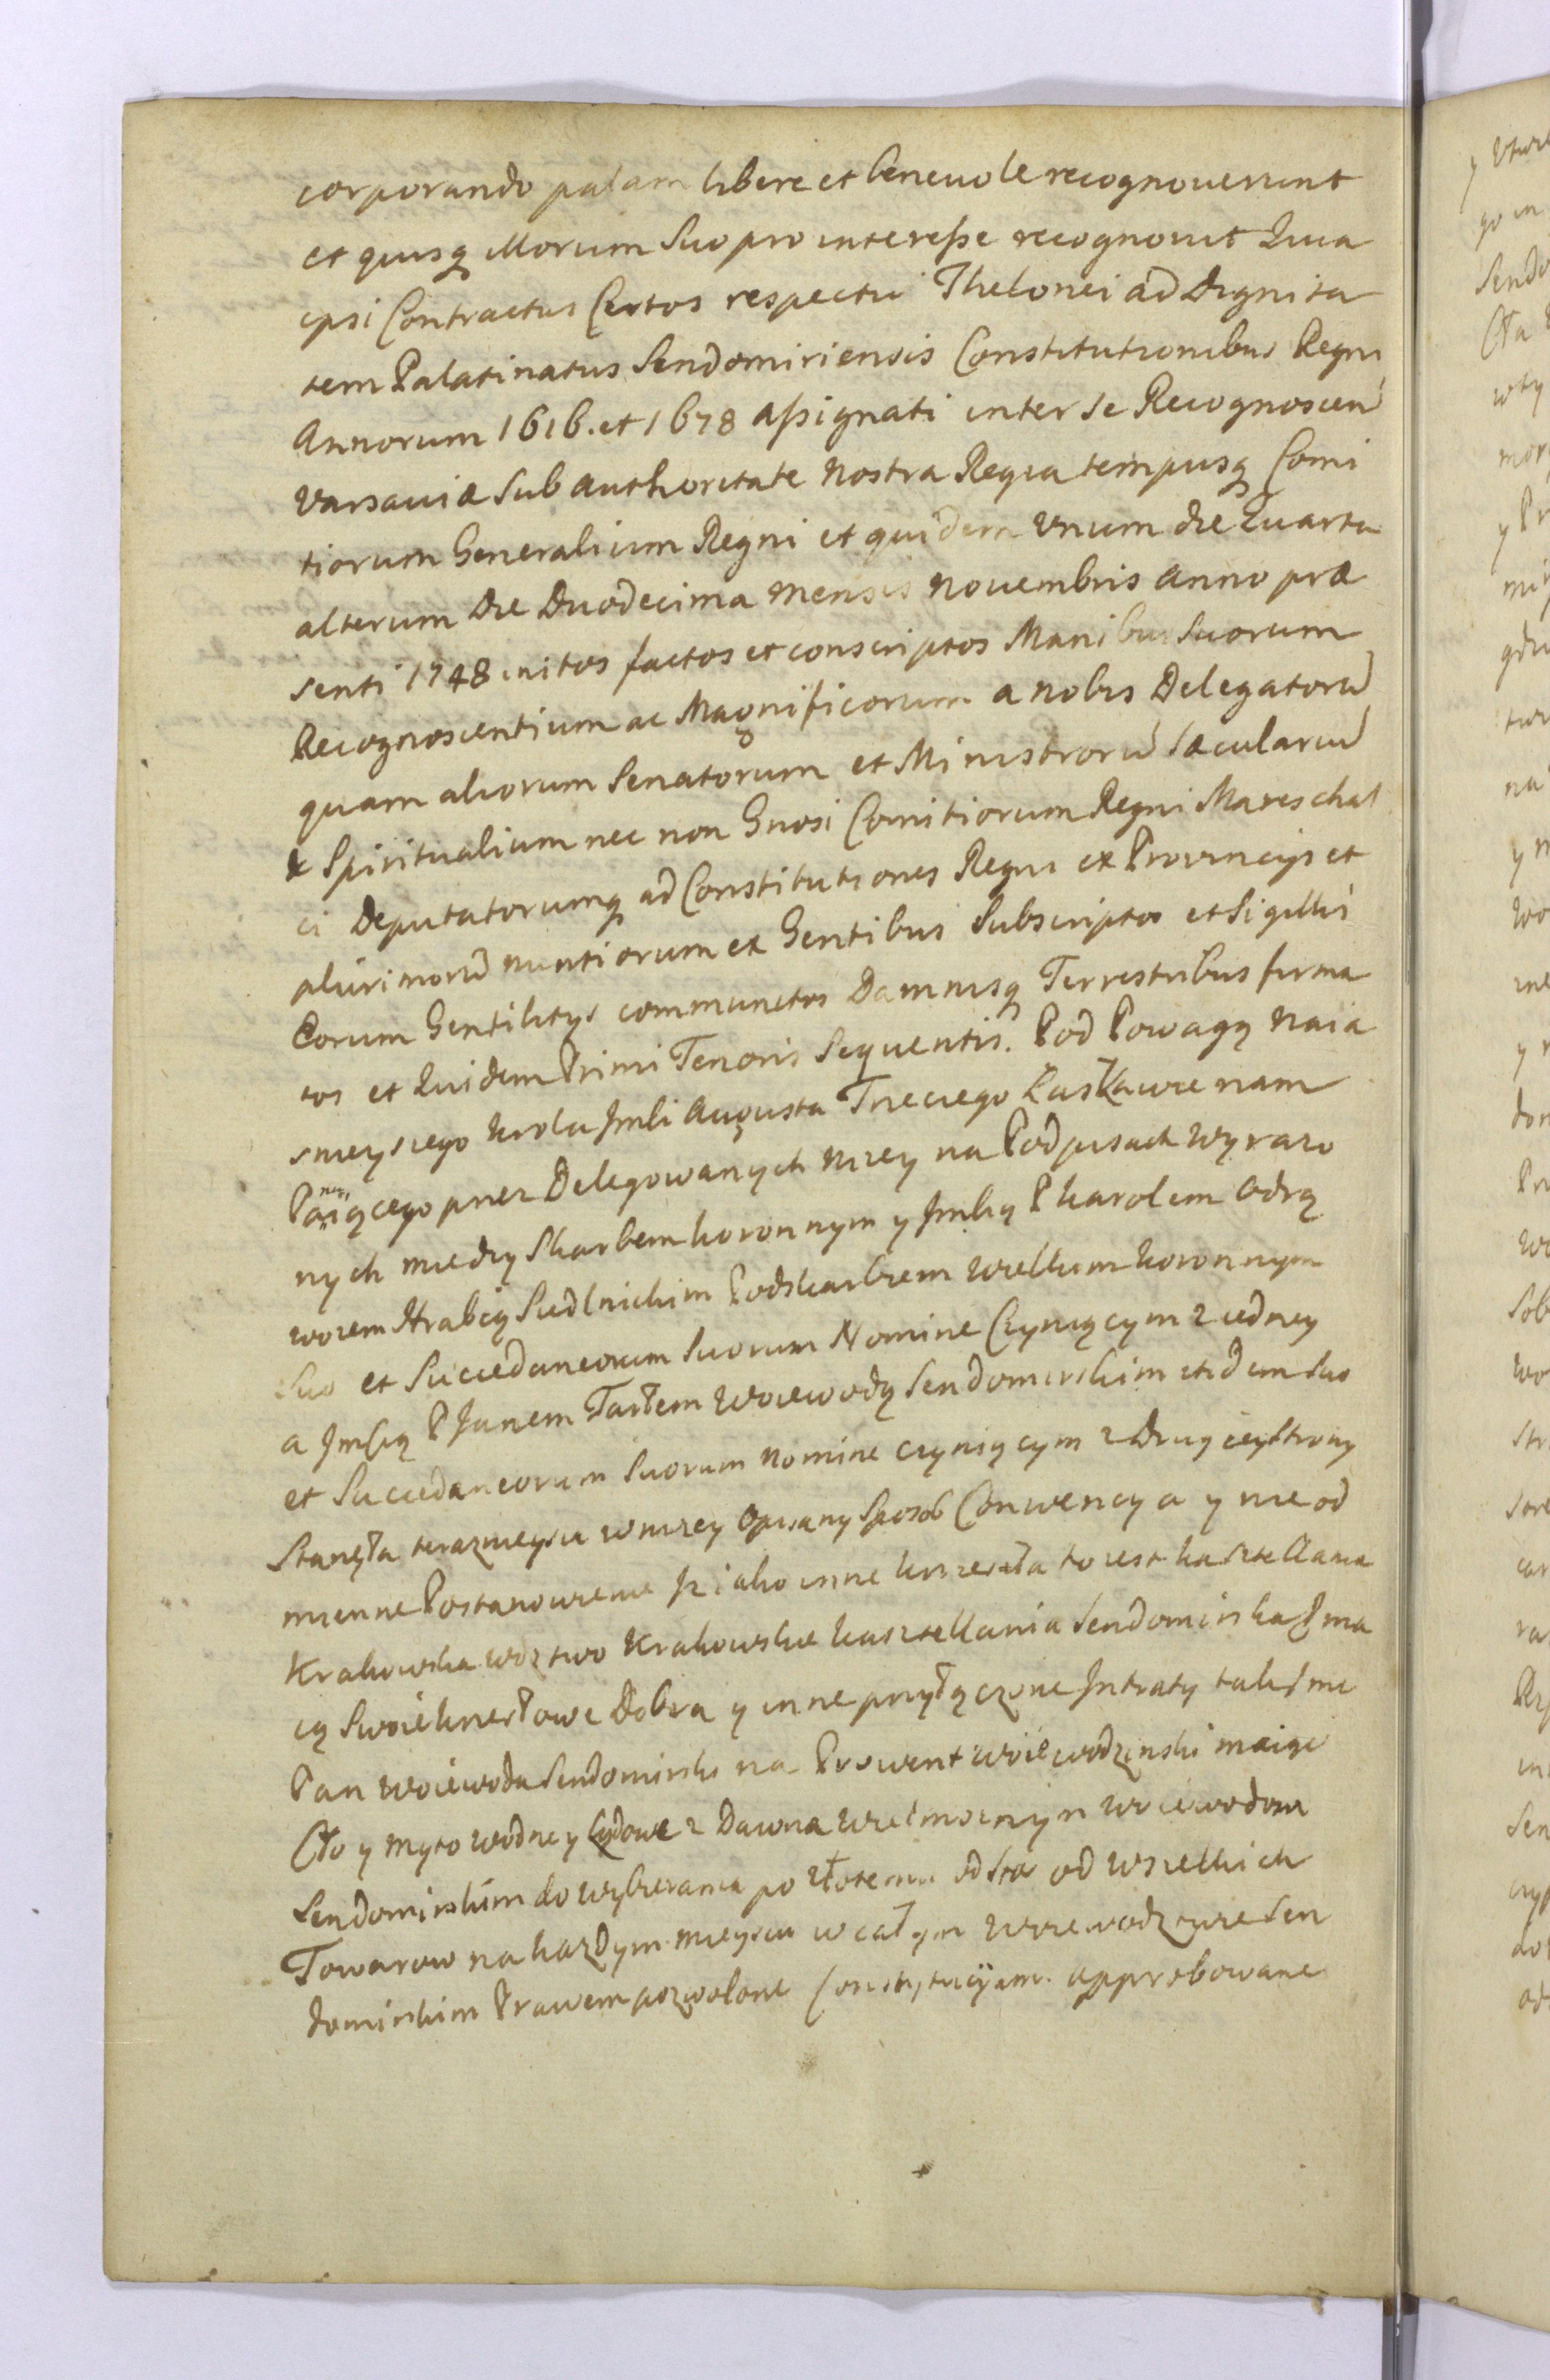 corporando palam libere et benevole recognoverunt
et quisq illorum Suo pro interesse recognovit Quia
ipsi Contractus Certos respectu Thelonei ad Dignita
tem Palatinatus Sendomiriensis Constitutionibus Regni
Annorum 1616. et 1678 assignati inter se Recognoscen
Varsaviæ sub authoritate Nostra Regia tempusq Comi
tiorum Generalium Regni et quidem Unum die Quarta
alterum Die Duodecima Mensis Novembris Anno præ
senti 1748 initos factos et conscriptos Manibus Suorum
Recognoscentium ac Magnificorum a nobis Delegatorū
quam aliorum Senatorum et Ministrorū sæculariū
& Spiritualium nec non Gnosi Comitiorum Regni Mareschal
ci Deputatorumq ad Constitutiones Regni ex Provincijs et
plurimorū nuntiorum ex Gentibus Subscriptos et Sigillis
Eorum Gentilitijs communitos Damnisq Terrestribus firma
tos et Quidem Primi Tenoris Sequentis. Pod Powagą Naia
snieyszego Krola Jmsci Augusta Trzeciego Łaskawie nam
Panuiącego przez Delegowanych nizey na Podpisach Wyrazo
nych miedzy Skarbem koronnym y Jmscią P Karolem Odrą
wozem Hrabią Siedlnickim Podskarbiem Wielkim koronnym
Suo et Succedaneorum Suorum Nomine Czyniącym z iedney
a Jmscią P Janem Tarłem Woiewodą Sendomirskim itidem Suo
et Succedaneorum Suorum nomine czyniącym z Drugiey Strony
Stanęła teraznieysza w nizey Opisany Sposob Conwencya y nieod
mienne Postanowienie Jz iako inne krzesła to iest kasztellania
Krakowska wdztwo Krakowskie kasztellania Sendomirska ma
ią Swoie krzesłowe Dobra y inne przyłączone Jntraty tak Jmc
Pan Woiewoda Sendomirski na Prowent woiewodzinski maiąc
Cło y myto wodne y lądowe z Dawna Wielmoznym woiewodom
Sendomirskim do wybierania po złotemu od sta od wszelkich
Towarow na kazdym mieyscu w całym Woiewodztwie Sen
domirskim Prawem pozwolone Constytucyami approbowane